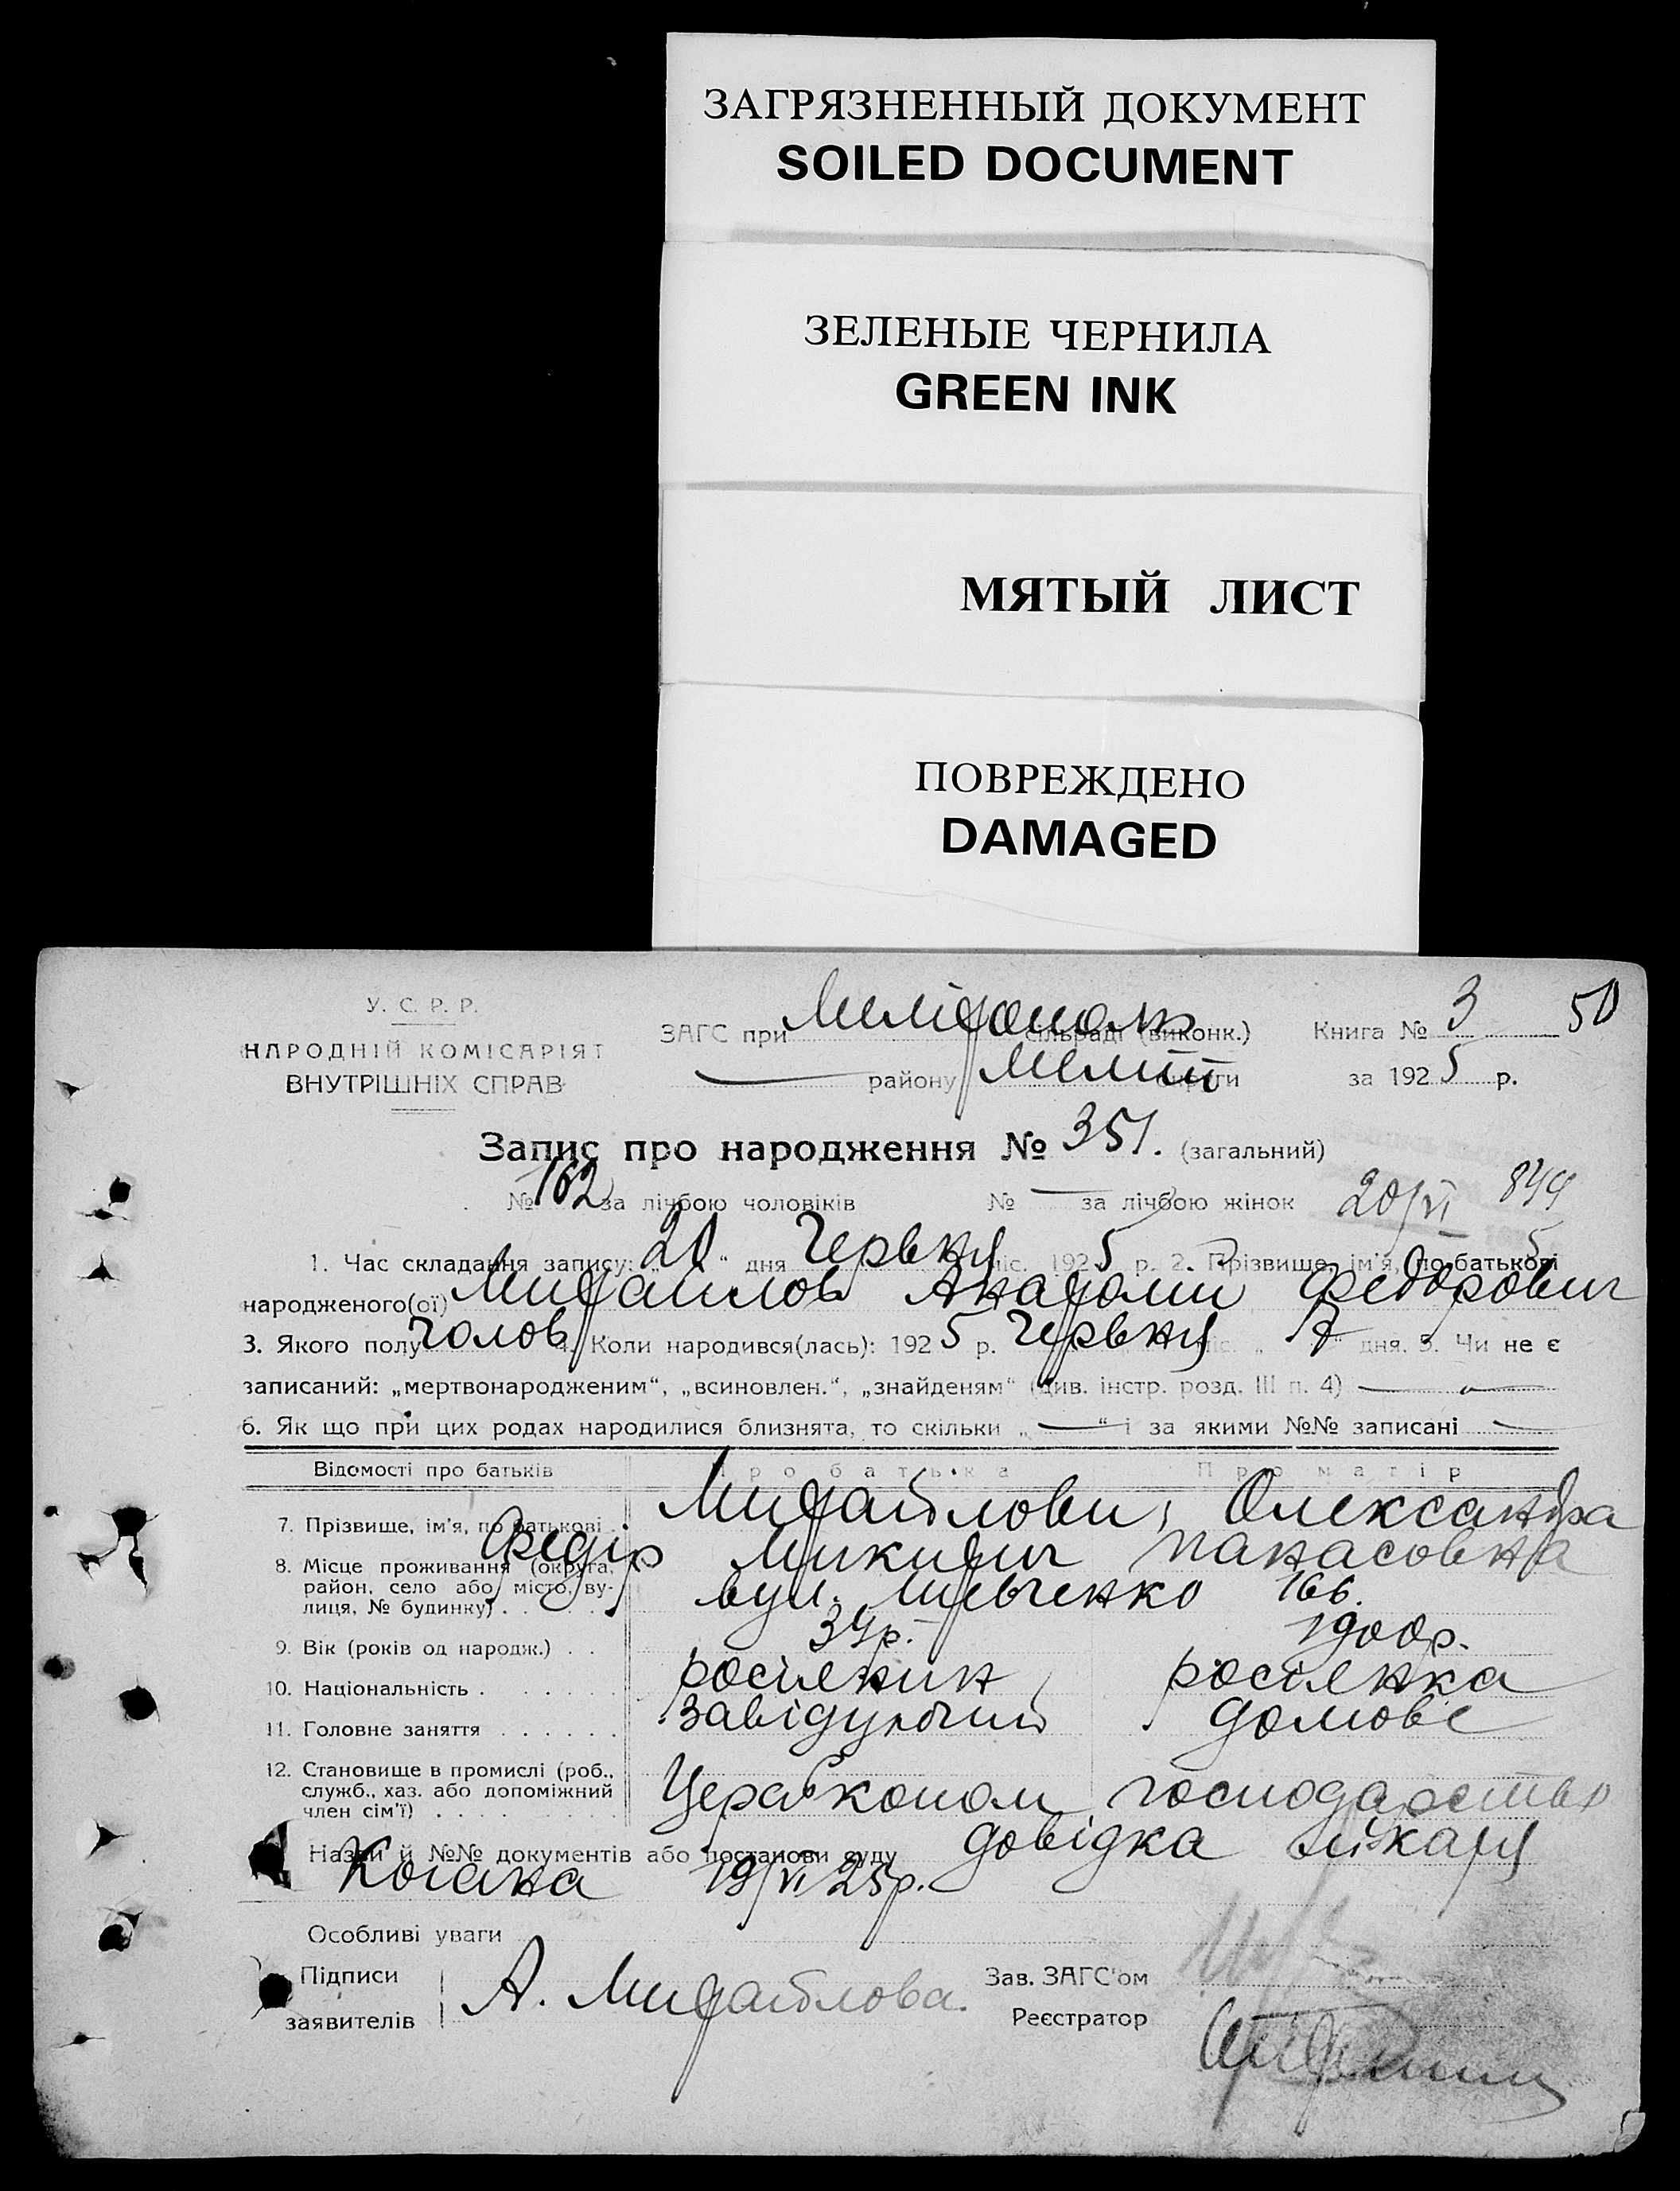 ЗАГРЯЗНЕННЫЙ ДОКУМЕНТ
SOILED DOCUMENT
ЗЕЛЕНЫЕ ЧЕРНИЛА
GREEN INK
МЯТЫЙ ЛИСТ
ПОВРЕЖДЕНО
DAMAGED
У. С. Р. Р.
НАРОДНІЙ КОМІСАРІЯТ
ВНУТРІШНІХ СПРАВ
ЗАГС при сільраді (виконк.) Книга № 3 50
району округи за 1925 р.
Запис про народження № 351. (загальний)
№ 162 за лічбою чоловіків № — за лічбою жінок 20/VI
1. Час складання запису: „20“ дня Червня міс. 1925 р. 2. Прізвище, ім'я, по-батькові
народженого(ої) Михайлов Федорович
3. Якого полу Чолов 4. Коли народився(лась): 1925 р. Червня міс. „7“ дня. 5. Чи не є
записаний: „мертвонародженим“, „всиновлен.“, „знайденям“ (див. інстр. розд. III п. 4) —
6. Як що при цих родах народилися близнята, то скільки „—“ і за якими №№ записані —
Відомості про батьків Про батька Про матір
7. Прізвище, ім'я, по батькові Михайлови, Олександра
Федір Микитич Панасовна
8. Місце проживання (округа,
район, село або місто, ву-
лиця, № будинку) вул. Шевченко 166.
9. Вік (років од народж.) 34р. 1900р.
10. Національність росіянин росіянка
11. Головне заняття завідуючий домове
12. Становище в промислі (роб.,
служб., хаз. або допоміжний
член сім'ї) Церабкопом господарство
Назви й №№ документів або постанови суду довідка лікаря
Когана 19/VI 25р.
Особливі уваги
Підписи
заявителів А. Михайлова.
Зав. ЗАГС'ом
Реєстратор